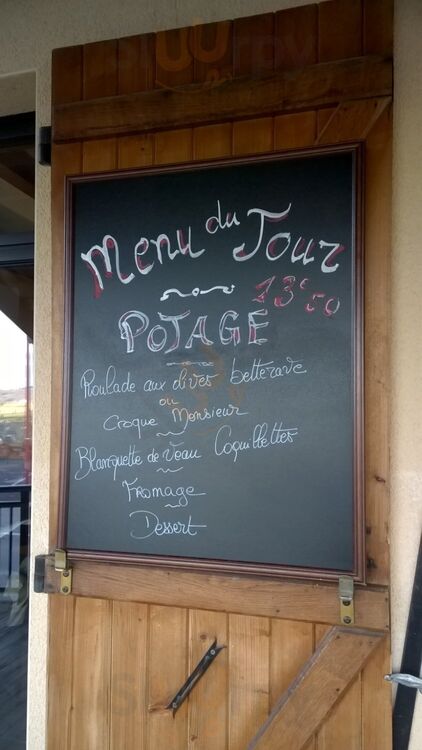 Menu du Jour
13€50
POTAGE
Roulade aux olives betterave
ou
Croque Monsieur
Blanquette de Veau Coquillettes
Fromage
Dessert